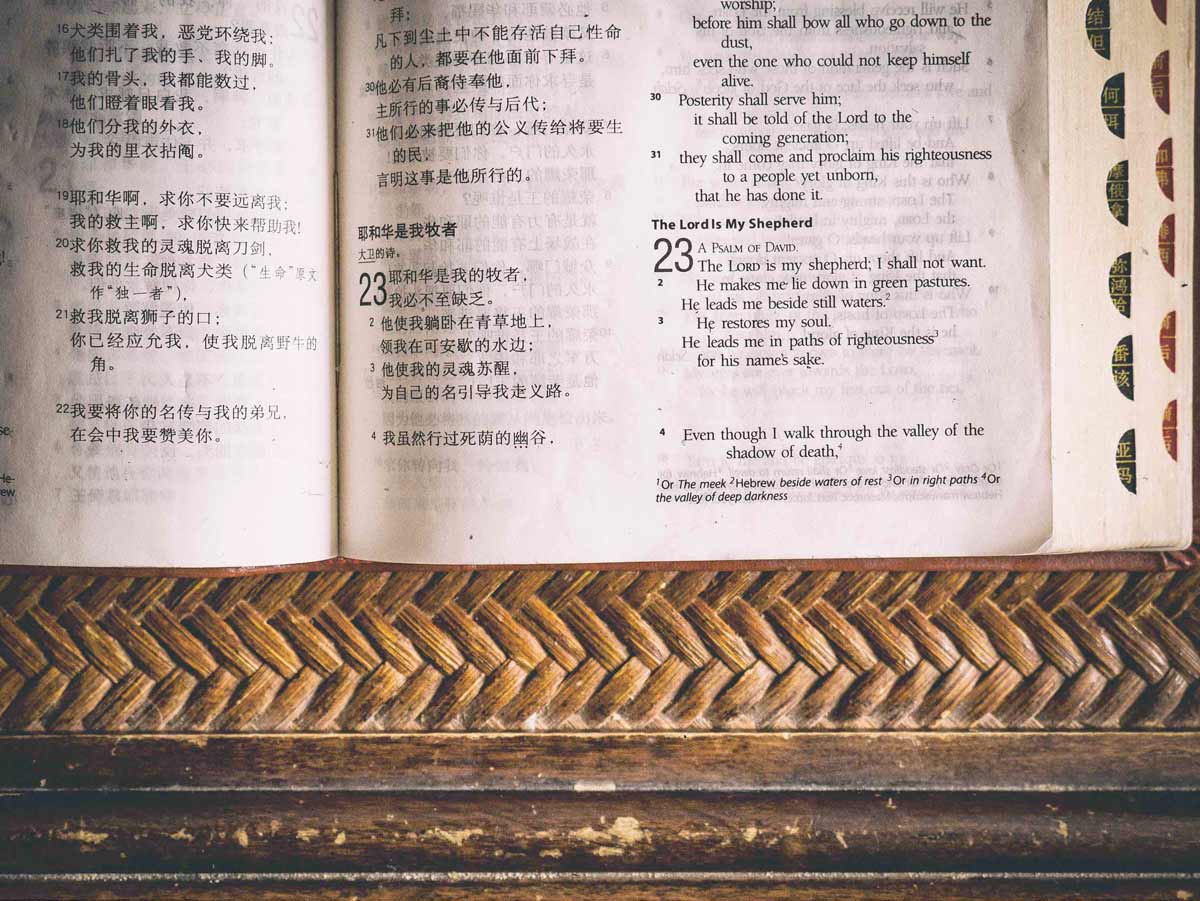 16犬类围着我，恶党环绕我；
他们扎了我的手、我的脚。
17我的骨头，我都能数过，
他们瞪着眼看我。
18他们分我的外衣，
为我的里衣拈阄。
19耶和华啊，求你不要远离我；
我的救主啊，求你快来帮助我！
20求你救我的灵魂脱离刀剑，
救我的生命脱离犬类（“生命”原文
作“独一者”），
21救我脱离狮子的口；
你已经应允我，使我脱离野牛的
角。
22我要将你的名传与我的弟兄，
在会中我要赞美你。
拜；
凡下到尘土中不能存活自己性命
的人，都要在他面前下拜。
30他必有后裔侍奉他，
主所行的事必传与后代；
31他们必来把他的公义传给将要生
的民，
言明这事是他所行的。
耶和华是我牧者
大卫的诗。
23耶和华是我的牧者，
我必不至缺乏。
2 他使我躺卧在青草地上，
领我在可安歇的水边；
3 他使我的灵魂苏醒，
为自己的名引导我走义路。
4 我虽然行过死荫的幽谷，
worship;
before him shall bow all who go down to the
dust,
even the one who could not keep himself
alive.
30 Posterity shall serve him;
it shall be told of the Lord to the
coming generation;
31 they shall come and proclaim his righteousness
to a people yet unborn,
that he has done it.
The Lord Is My Shepherd
23 A PSALM OF DAVID.
The LORD is my shepherd; I shall not want.
2 He makes me lie down in green pastures.
He leads me beside still waters.2
3 He restores my soul.
He leads me in paths of righteousness3
for his name's sake.
4 Even though I walk through the valley of the
shadow of death,4
1Or The meek 2Hebrew beside waters of rest 3Or in right paths 4Or
the valley of deep darkness
结
但
何
珥
摩
俄
拿
弥
鸿
哈
番
该
亚
玛